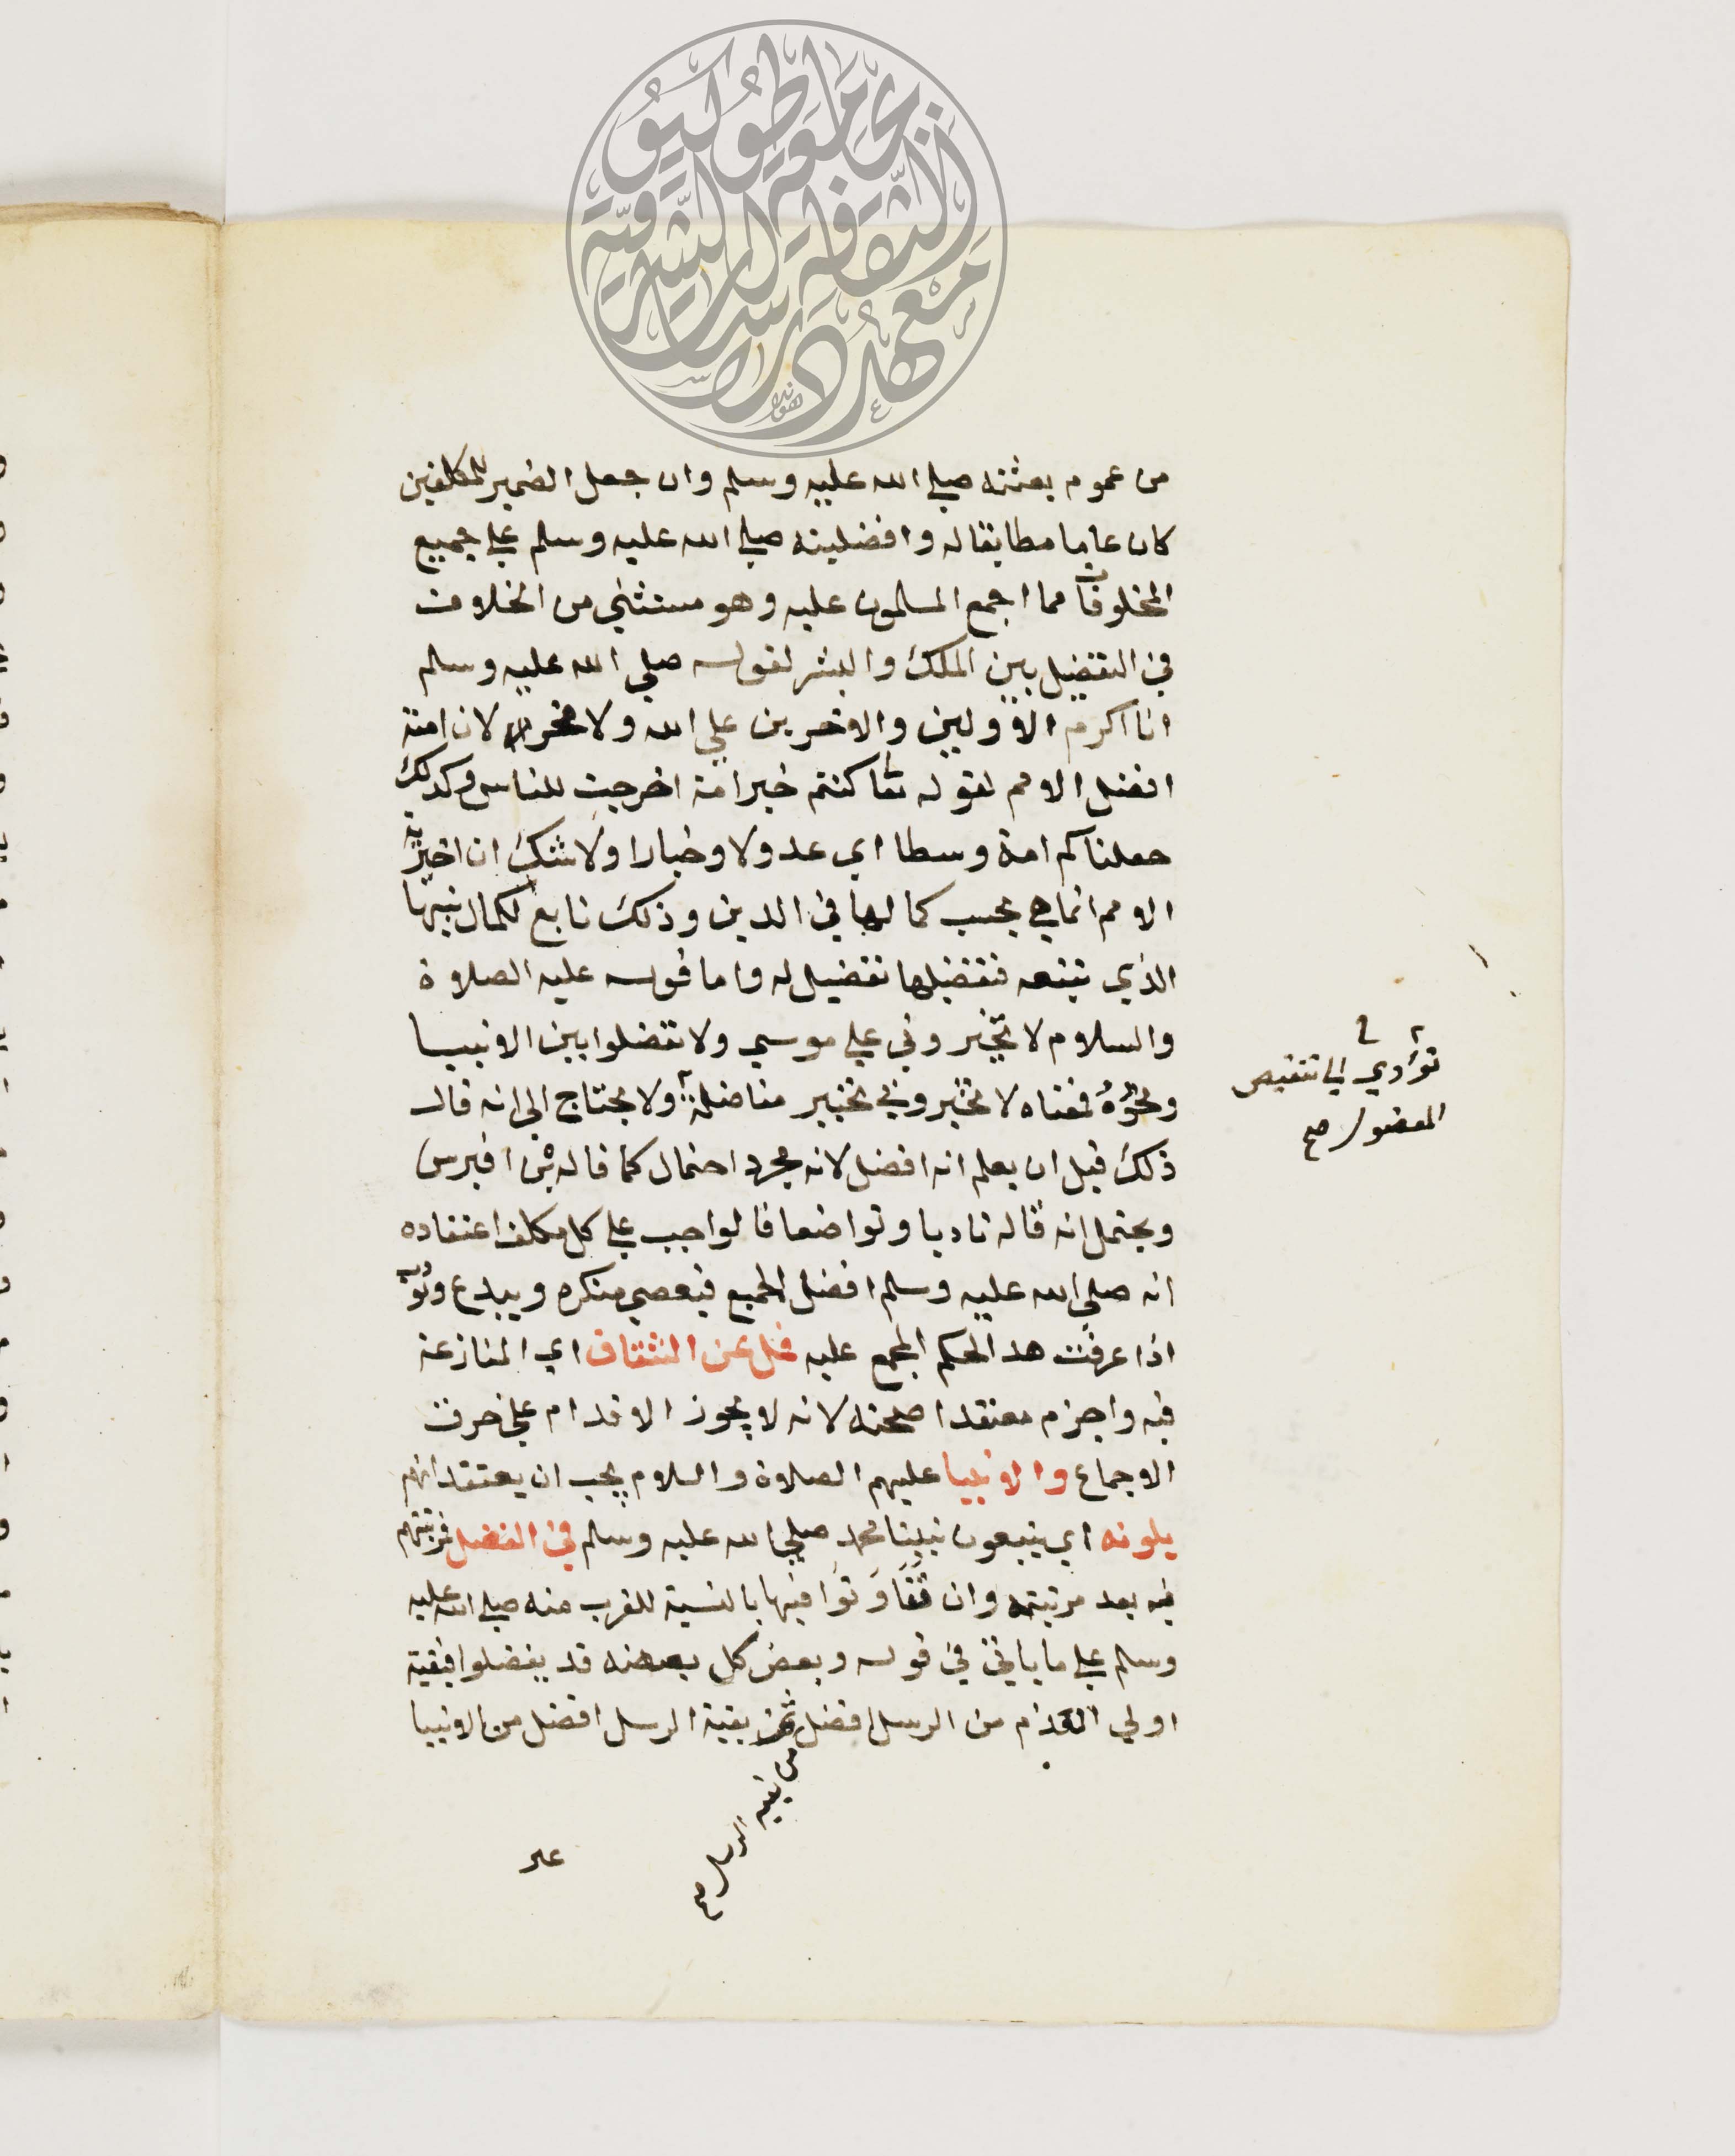 من عموم بعثته صلي الله عليه وسلم وان جعل الضمير للمكلفين
كان عاما مطابقا له وافضليته صلي الله عليه وسلم علي جميع
المخلوقات مما اجمع المسلمون عليه وهو مستثني من الخلاف
في التفضيل بين الملك والبشر لقوله صلي الله عليه وسلم
انا اكرم الاولين والاخرين علي الله ولا فخر لان امته
افضل الامم لقوله تعا كنتم خير امة اخرجت للناس وكذلك
جعلناكم امة وسطا اي عدولا وخيارا ولا شك ان اخيرية
الامم انما هي بحسب كمالها في الدين وذلك تابع لكمال نبيها
الذي تتبعه فتفضيلها تفضيل له واما قوله عليه الصلاة
والسلام لا تخيروني علي موسي ولا تفضلوا بين الانبيا
ونحوه فمعناه لا تخيروني تخيير مفاضلة ولا يحتاج الي انه قال
تؤدي الي تنقيص
المفضول صح
ذلك قبل ان يعلم انه افضل لانه مجرد احتمال كما قاله ابن اقبرس
ويحتمل انه قاله تادبا وتواضعا فالواجب علي كل مكلف اعتقاده
انه صلي الله عليه وسلم افضل الجميع فيعصي منكره ويبدع ويؤدب
اذا عرفت هد الحكم المجمع عليه فمل عن الشقاق اي المنازعة
فيه واجزم معتقدا صحته لانه لا يجوز الاقدام علي خرق
الاجماع والانبيا عليهم الصلاة والسلام يجب ان يعتقد انهم
يلونه اي يتبعون نبينا محمد صلي الله عليه وسلم في الفضل فمرتبتهم
فيه بعد مرتبته وان تفاوتوا فيها بالنسبة للقرب منه صلي الله عليه
وسلم علي ما ياتي في قوله وبعض كل بعضه قد يفضل فبقية
اولي العزم من الرسل افضل من بقية الرسل افضل من الانبيا
من بقية الرسل صح
معهد دراسات الثقافة الشرقية
جامعة طوكيو